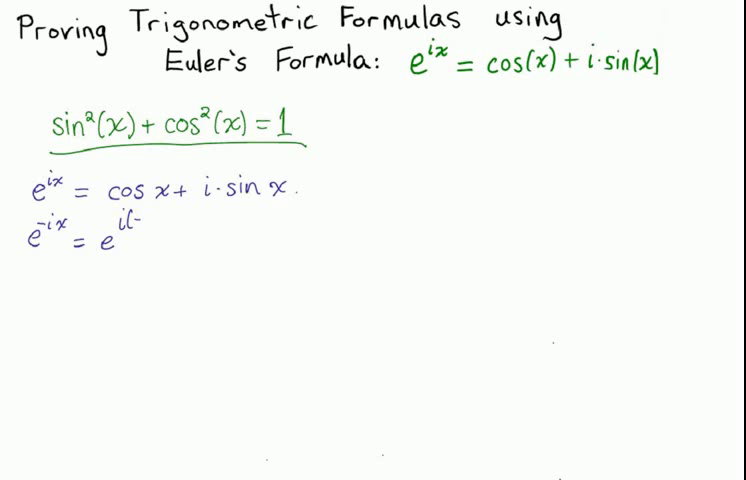 Proving Trigonometric Formulas using
Euler's Formula: e^{ix} = cos(x) + i·sin(x)
sin²(x) + cos²(x) = 1
e^{ix} = cos x + i·sin x.
e^{-ix} = e^{i(-